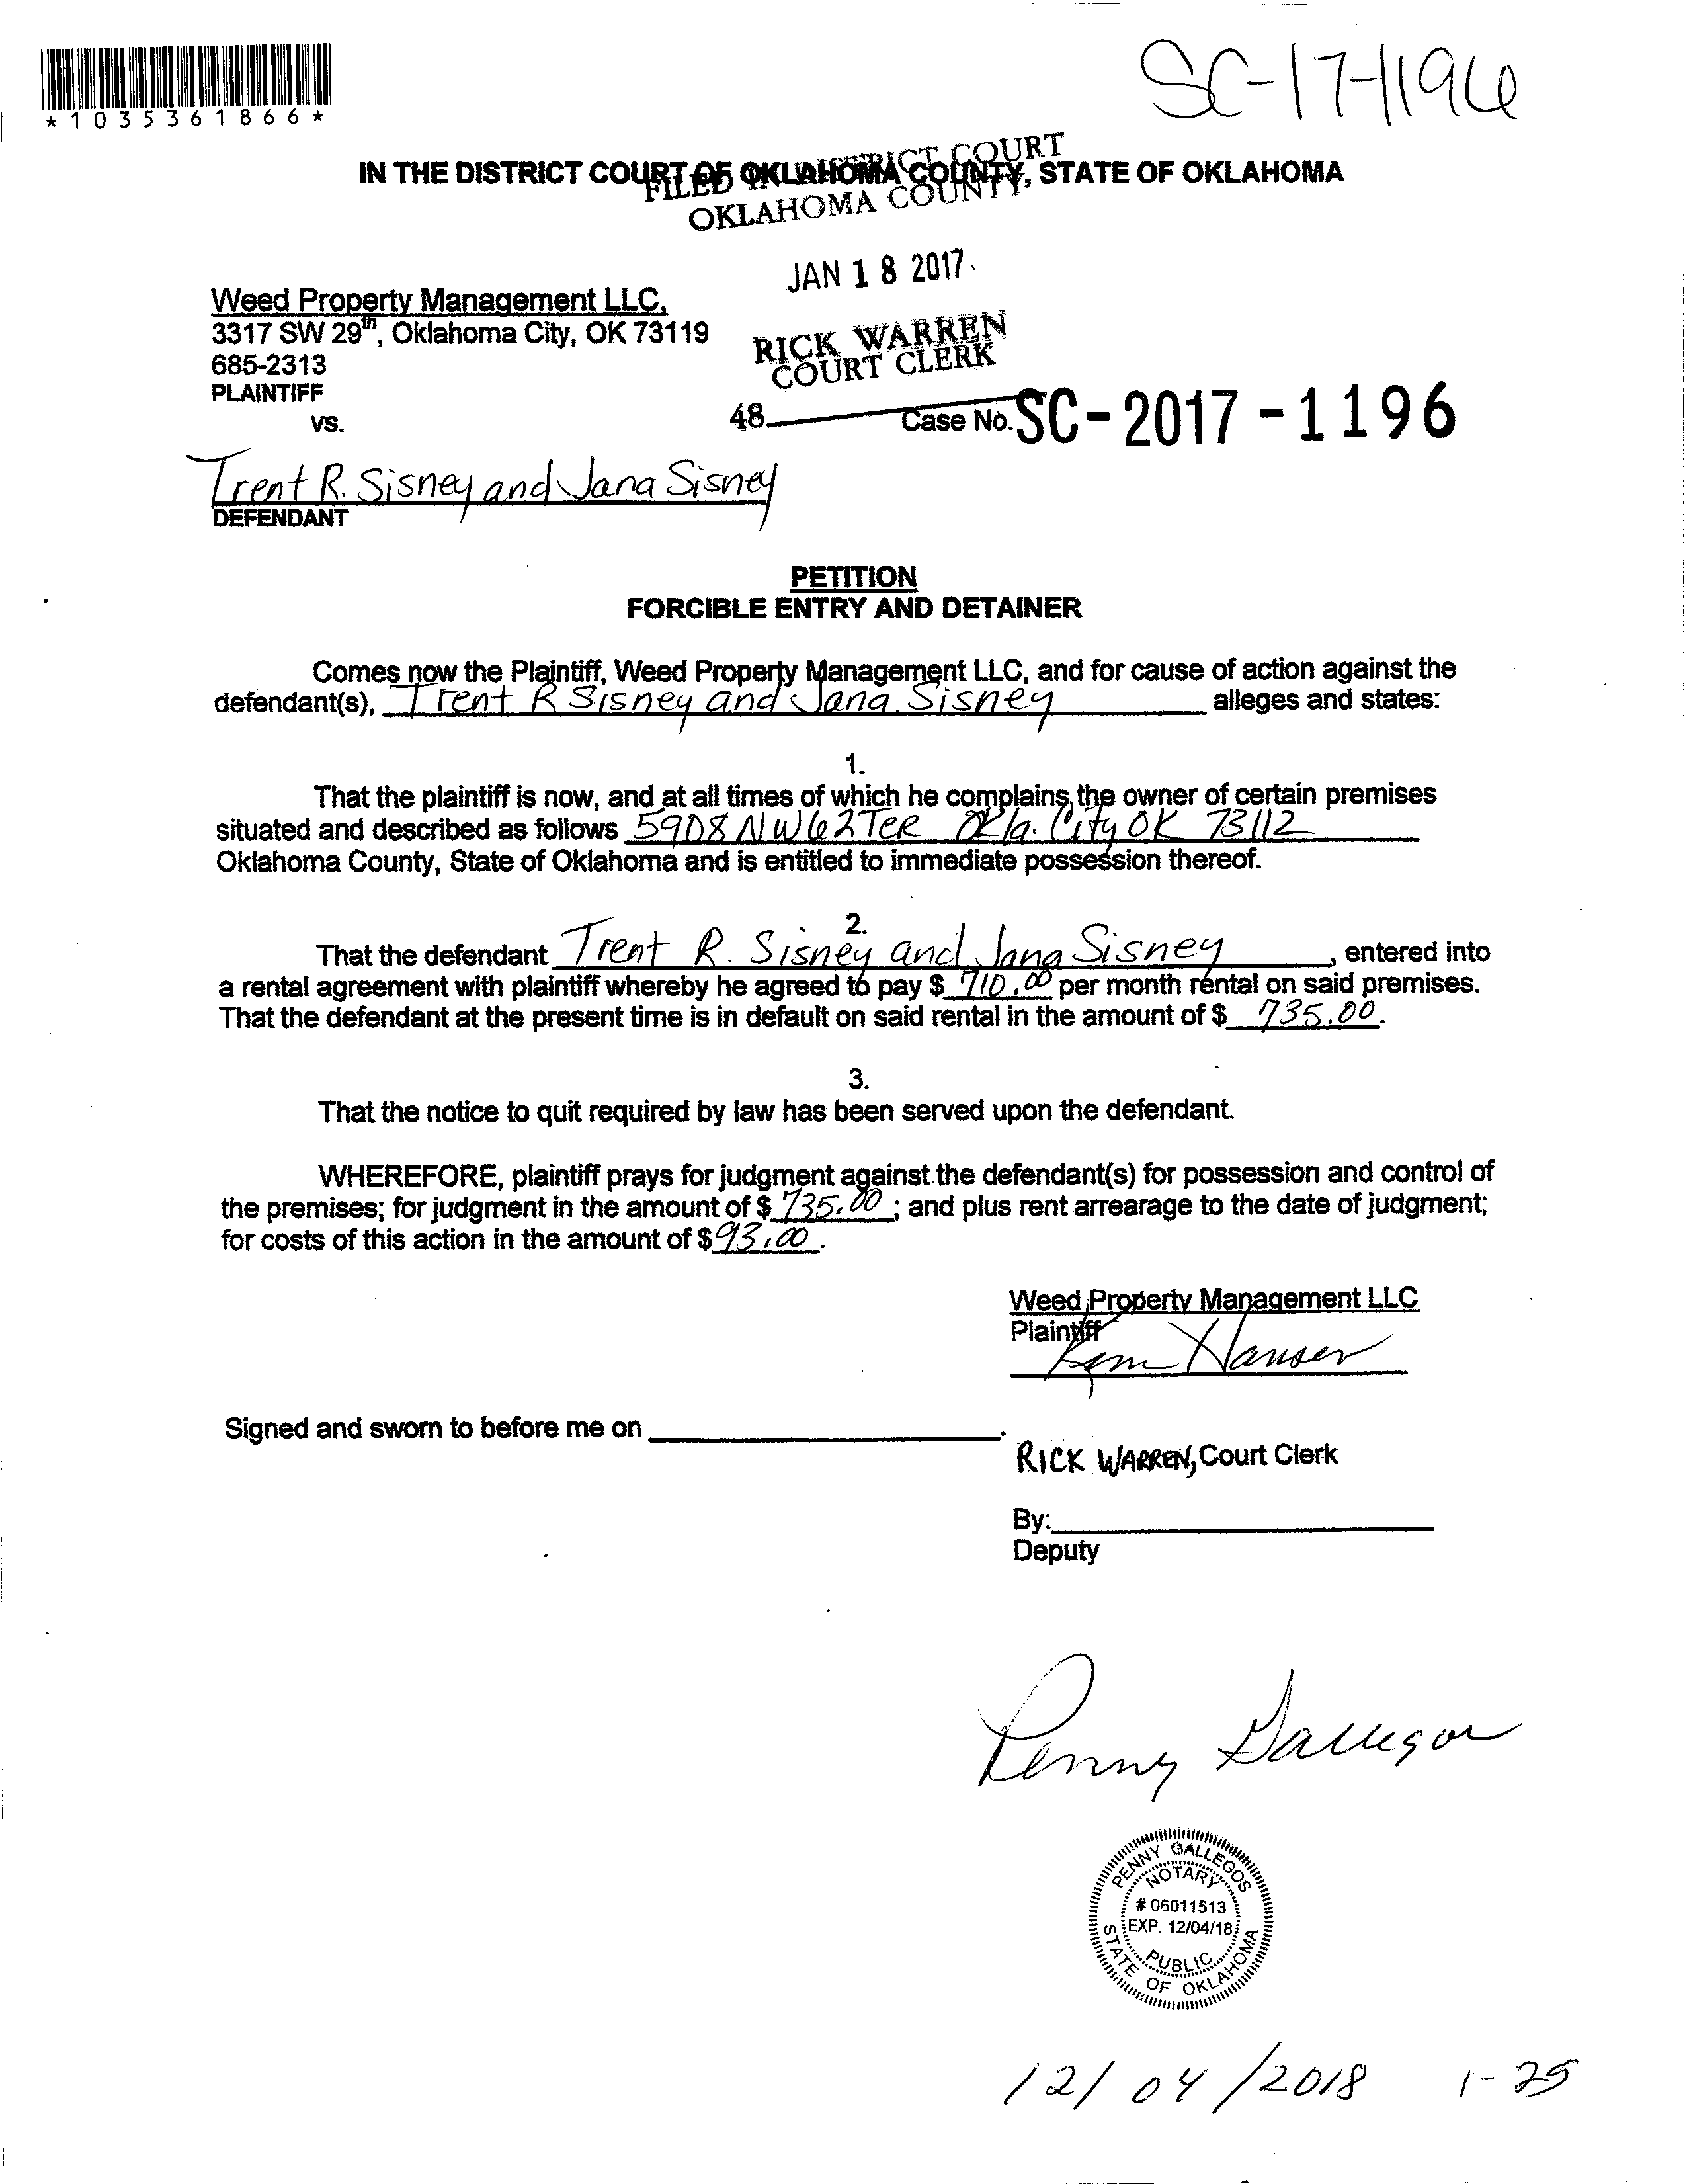 *1035361866*
SC-17-1196
IN THE DISTRICT COURT OF OKLAHOMA COUNTY, STATE OF OKLAHOMA
FILED IN DISTRICT COURT
OKLAHOMA COUNTY
JAN 18 2017
RICK WARREN
COURT CLERK
48
Weed Property Management LLC,
3317 SW 29th, Oklahoma City, OK 73119
685-2313
PLAINTIFF
vs.
Case No. SC-2017-1196
Trent R. Sisney and Jana Sisney
DEFENDANT
PETITION
FORCIBLE ENTRY AND DETAINER
Comes now the Plaintiff, Weed Property Management LLC, and for cause of action against the
defendant(s), Trent R Sisney and Jana Sisney alleges and states:
1.
That the plaintiff is now, and at all times of which he complains, the owner of certain premises
situated and described as follows 5908 NW 62 Ter Okla. City OK 73112
Oklahoma County, State of Oklahoma and is entitled to immediate possession thereof.
2.
That the defendant Trent R. Sisney and Jana Sisney, entered into
a rental agreement with plaintiff whereby he agreed to pay $ 710.00 per month rental on said premises.
That the defendant at the present time is in default on said rental in the amount of $ 735.00.
3.
That the notice to quit required by law has been served upon the defendant.
WHEREFORE, plaintiff prays for judgment against the defendant(s) for possession and control of
the premises; for judgment in the amount of $ 735.00; and plus rent arrearage to the date of judgment;
for costs of this action in the amount of $ 93.00.
Weed Property Management LLC
Plaintiff
Kim Hansen
Signed and sworn to before me on
RICK WARREN, Court Clerk
By:
Deputy
Penny Gallegos
PENNY GALLEGOS
NOTARY
# 06011513
EXP. 12/04/18
PUBLIC
STATE OF OKLAHOMA
12/04/2018 1-25